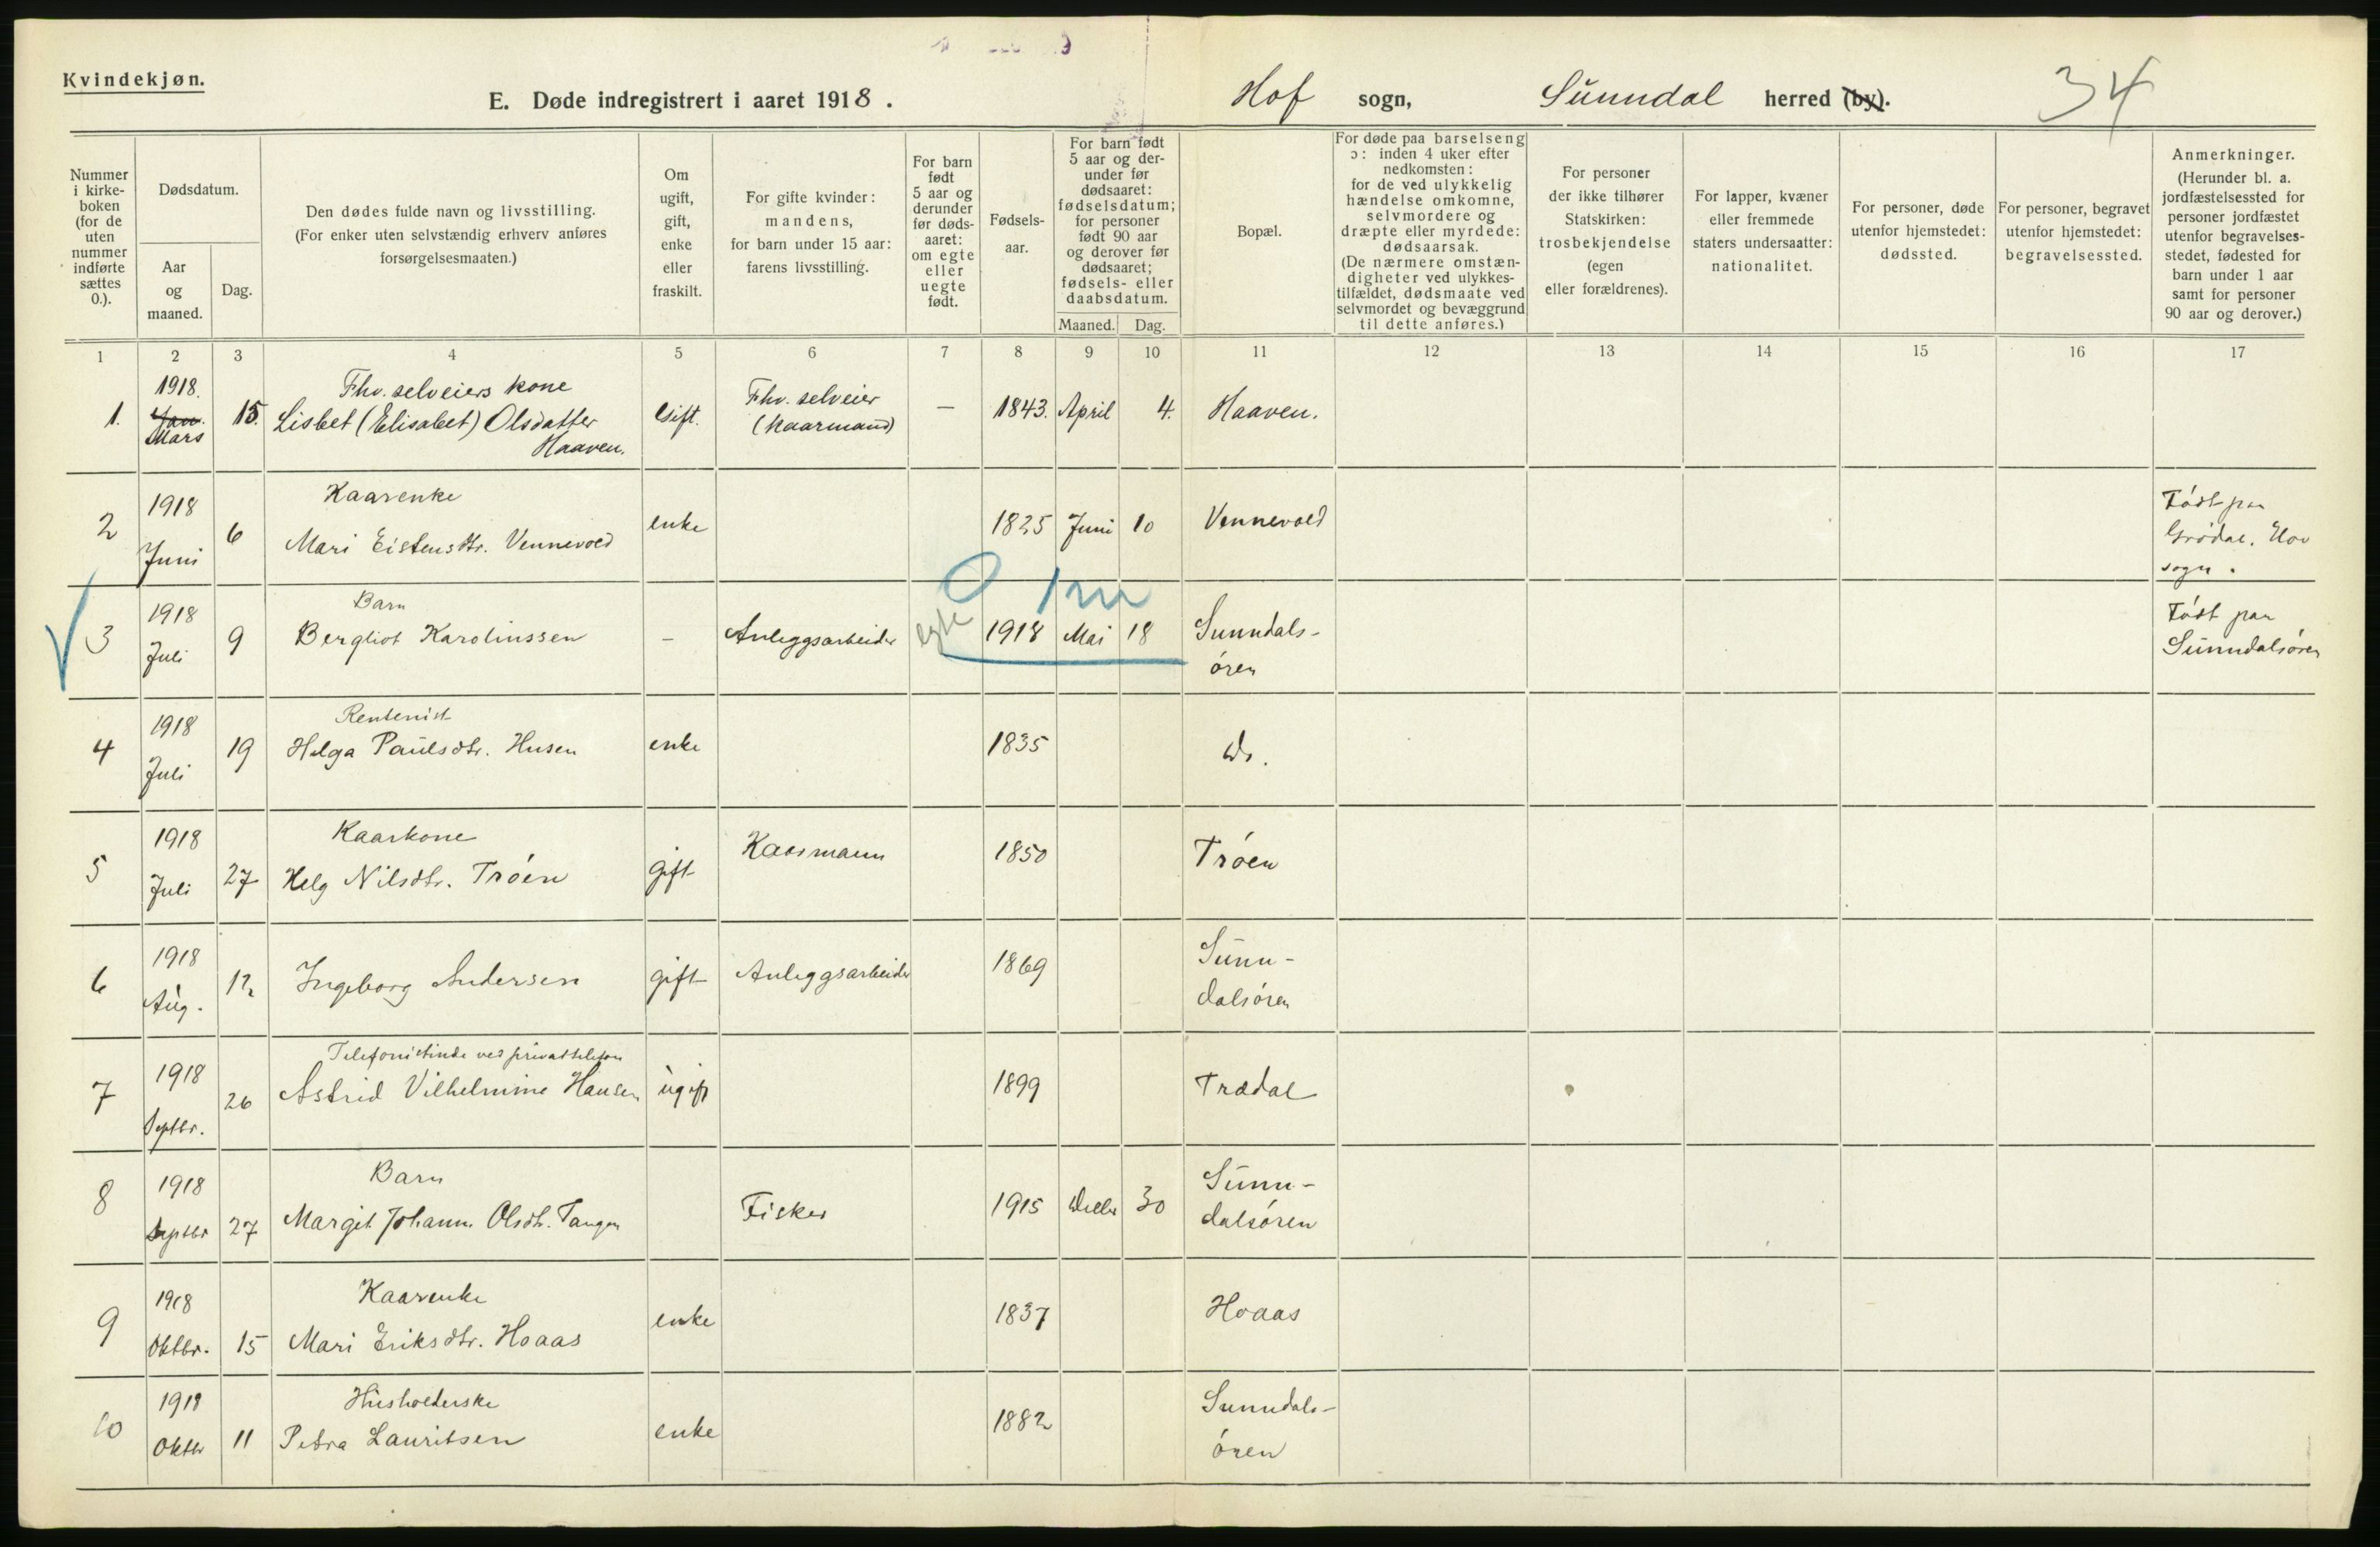 Kvindekjøn.
E. Døde indregistrert i aaret 1918.
Hof sogn, Sunndal herred (by).
34
Nummer i kirke-boken (for de uten nummer indførte sættes 0.).
Dødsdatum.
Aar og maaned.
Dag.
Den dødes fulde navn og livsstilling.
(For enker uten selvstændig erhverv anføres
forsørgelsesmaaten.)
Om ugift, gift, enke eller fraskilt.
For gifte kvinder: mandens, for barn under 15 aar: farens livsstilling.
For barn født 5 aar og derunder før døds-aaret: om egte eller uegte født.
Fødsels-aar.
For barn født 5 aar og der-under før dødsaaret: fødselsdatum; for personer født 90 aar og derover før dødsaaret; fødsels- eller daabsdatum.
Maaned. Dag.
Bopæl.
For døde paa barselseng ɔ: inden 4 uker efter nedkomsten: for de ved ulykkelig hændelse omkomne, selvmordere og dræpte eller myrdede: dødsaarsak. (De nærmere omstæn-digheter ved ulykkes-tilfældet, dødsmaate ved selvmordet og bevæggrund til dette anføres.)
For personer der ikke tilhører Statskirken: trosbekjendelse (egen eller forældrenes).
For lapper, kvæner eller fremmede staters undersaatter: nationalitet.
For personer, døde utenfor hjemstedet: dødssted.
For personer, begravet utenfor hjemstedet: begravelsessted.
Anmerkninger. (Herunder bl. a. jordfæstelsessted for personer jordfæstet utenfor begravelses-stedet, fødested for barn under 1 aar samt for personer 90 aar og derover.)
1 2 3 4 5 6 7 8 9 10 11 12 13 14 15 16 17
1. 1918. Jan. Mars 15. Fhv. selveiers kone Lisbet (Elisabet) Olsdatter Haaven. Gift. Fhv. selveier (kaarmand) — 1843. April 4. Haaven.
2 1918 Juni 6 Kaarenke Mari Eistensdtr. Vennevold enke 1825 Juni 10 Vennevold Født paa Grødal, Hov sogn.
3 1918 Juli 9 Barn Bergliot Karolinssen – Anleggsarbeider egte 0 1 m 1918 Mai 18 Sunndals-ören Født paa Sunndalsøren
4 1918 Juli 19 Rentenist Helga Paulsdtr. Husen enke 1835 Do.
5 1918 Juli 27 Kaarkone Helg Nilsdtr. Tröen gift Kaarmann 1850 Tröen
6 1918 Aug. 12 Ingeborg Andersen gift Anleggsarbeider 1869 Sunn-dalsören
7 1918 Septbr. 26 Telefonistinde ved privattelefon Astrid Vilhelmine Hansen ugift 1899 Trædal
8 1918 Septbr 27 Barn Margit Johanne Olsdtr. Tangen Fisker 1915 Decbr 30 Sunn-dalsören
9 1918 Oktbr. 15 Kaarenke Mari Eriksdtr. Hoaas enke 1837 Hoaas
10 1918 Oktbr 11 Husholderske Petra Lauritsen enke 1882 Sunndals-ören